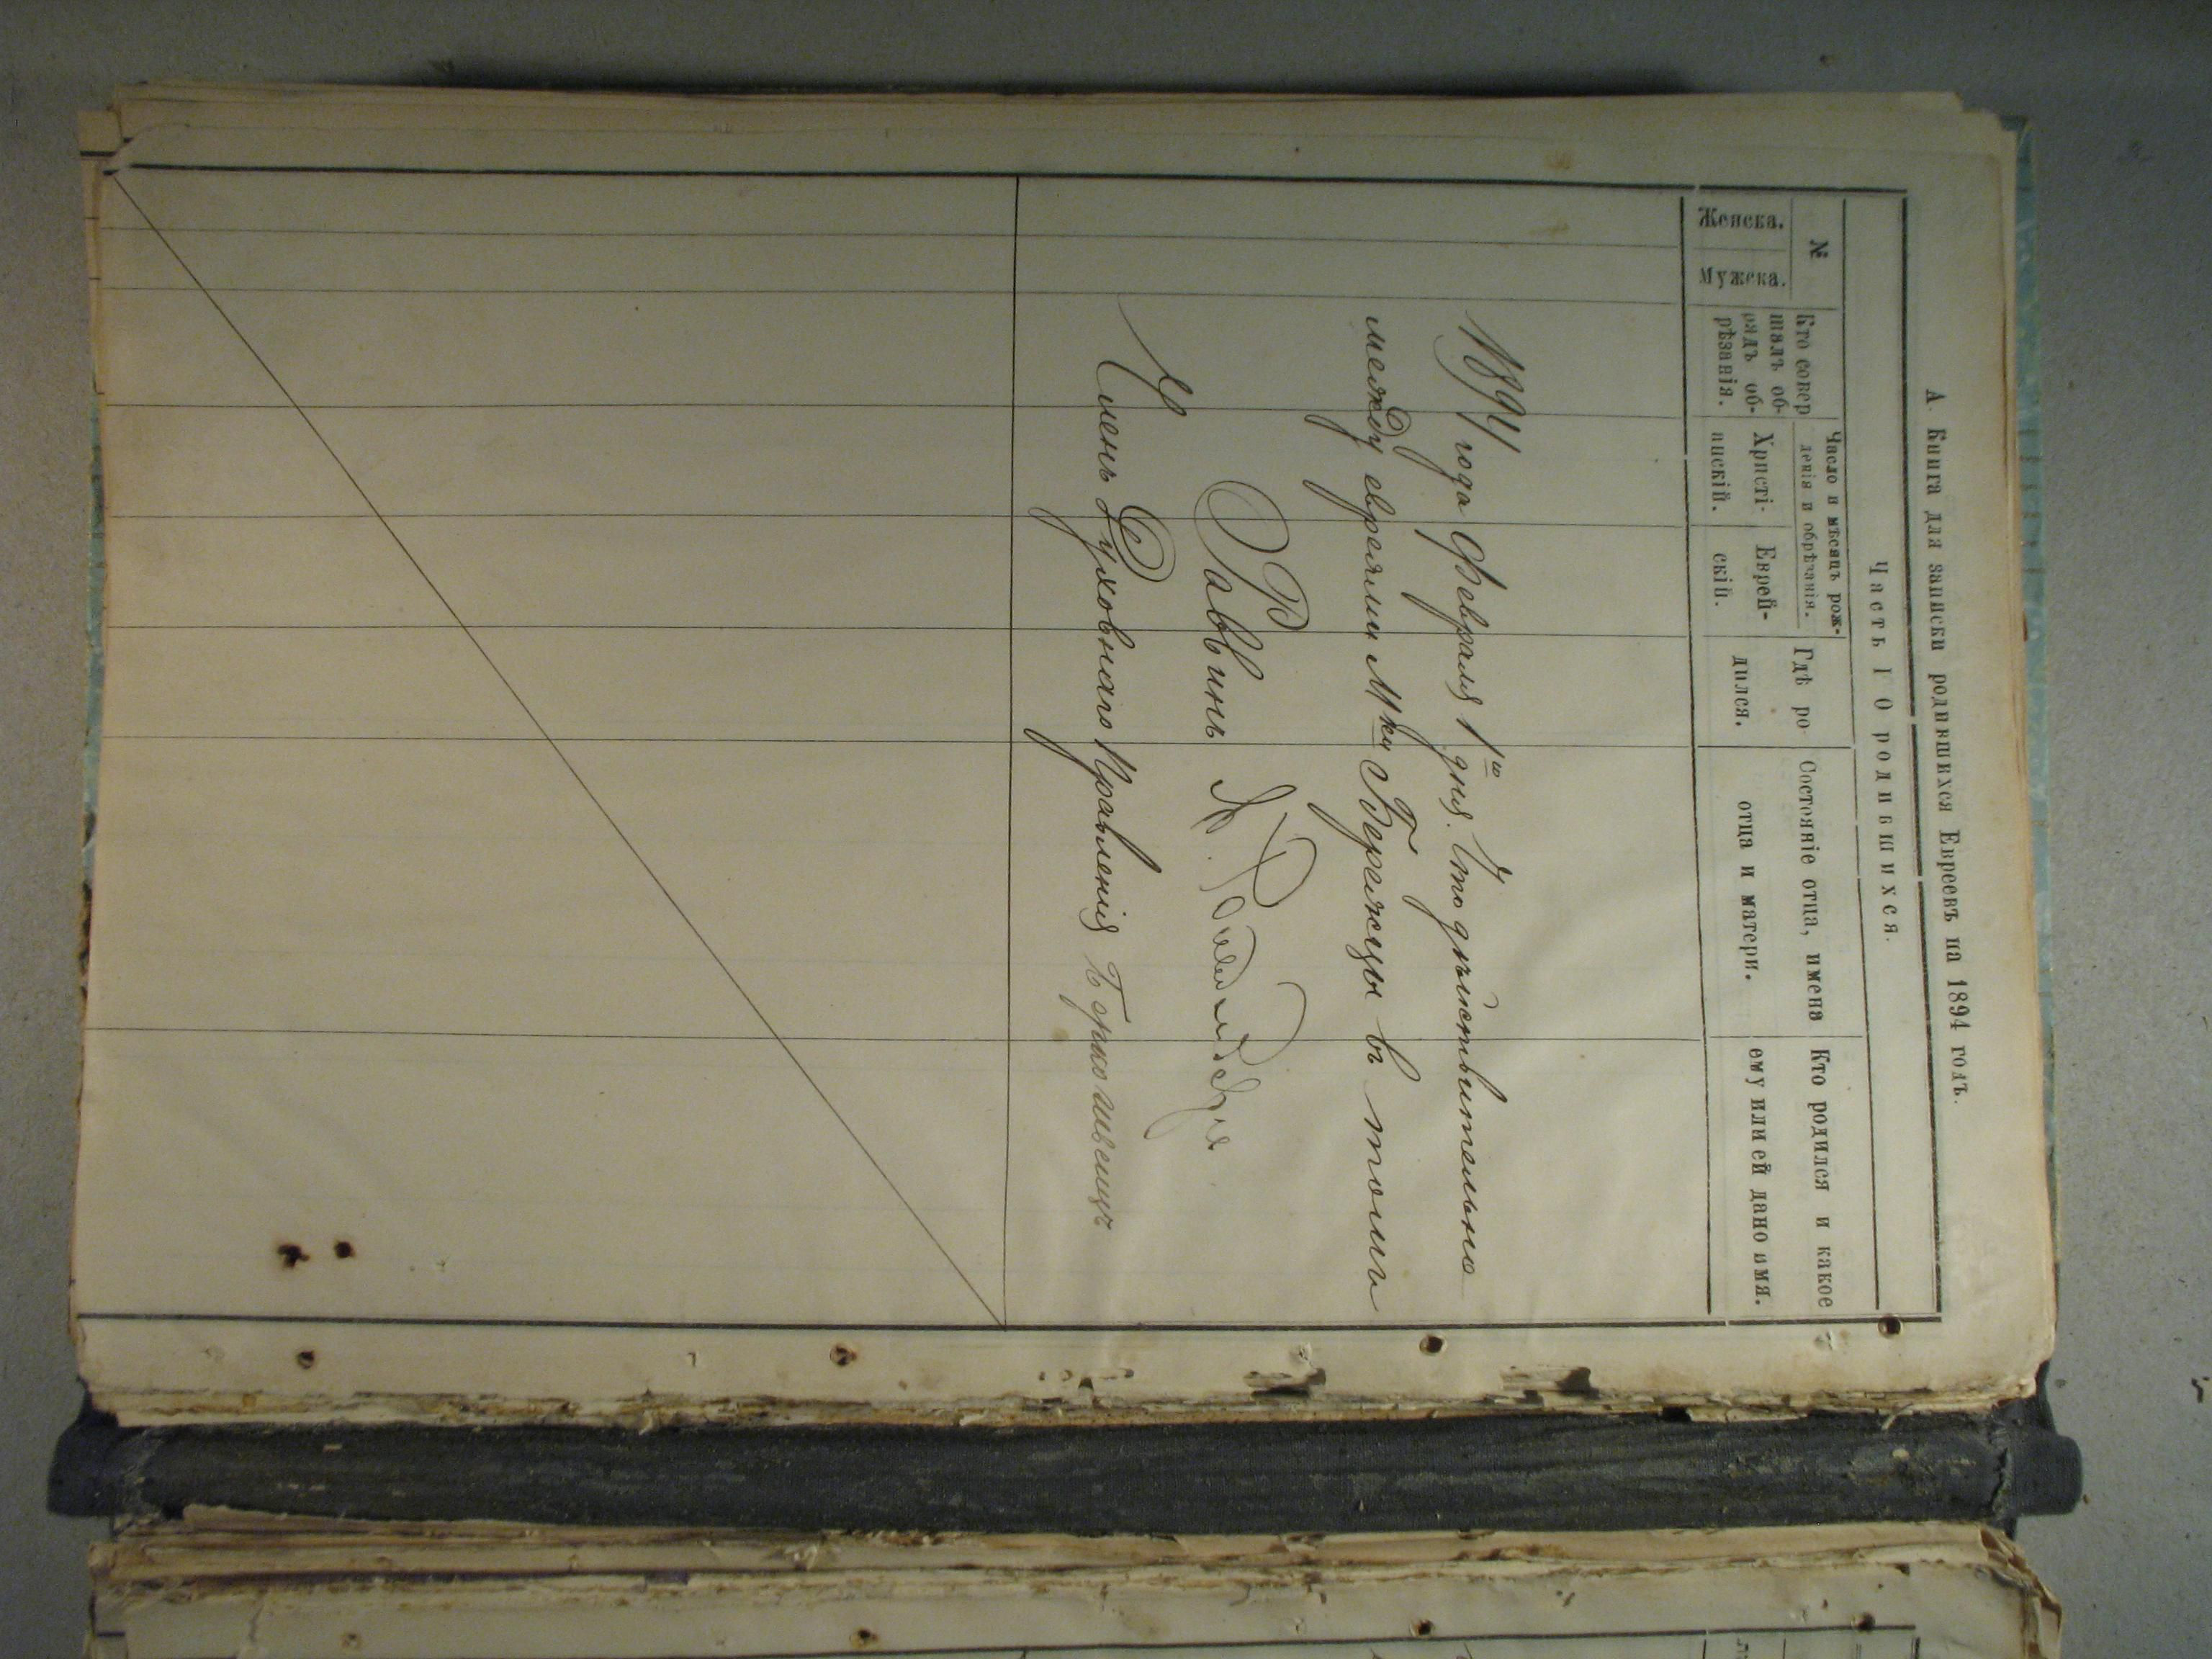 А. Книга для записки родившихся Евреевъ на 1894 годъ.
Часть I О родившихся.
№
Женска.
Мужска.
Кто совер
шалъ об-
рядъ об-
рѣзанія.
Число и мѣсяцъ рож-
денія и обрѣзанія.
Христі-
анскій.
Еврей-
скій.
Гдѣ ро-
дился.
Состояніе отца, имена
отца и матери.
Кто родился и какое
ему или ей дано имя.
1894 года Февраля 1го дня. Что дѣйствительно
между евреями Мки Бережцы въ томъ
Раввинъ
Членъ Духовнаго Правленія